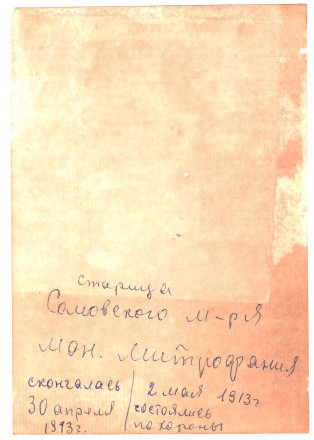 старица
Сомовского м-ря
мон. Митрофания
скончалась
30 апреля
1913г.
2 мая 1913г.
состоялись
похороны